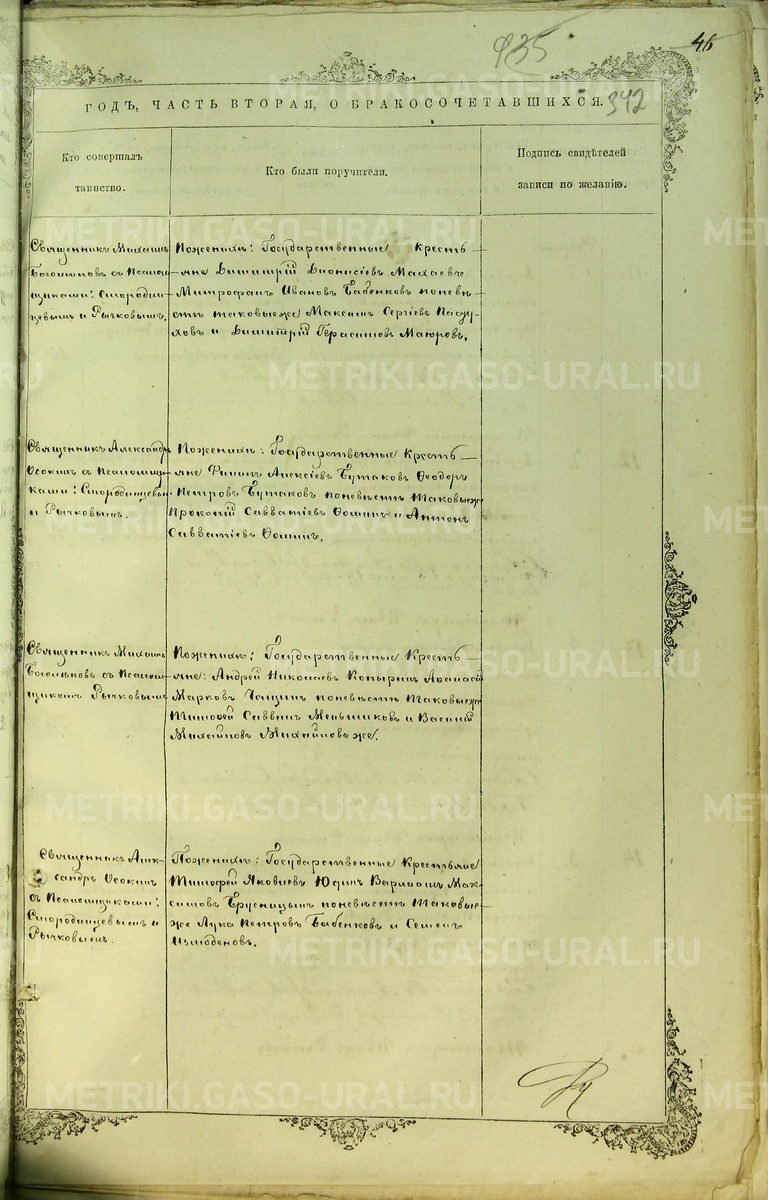 46
935
ГОДЪ, ЧАСТЬ ВТОРАЯ, О БРАКОСОЧЕТАВШИХСЯ.
342
Кто совершалъ
таинство.
Кто были поручители.
Подпись свидѣтелей
записи по желанію.
Священникъ Михаилъ
съ Псалом-
щиками: Смородин-
цевымъ и Рычковымъ.
По женихѣ: Государственные Кресть-
яне Димитрій Діонисіевъ
Митрофанъ Ивановъ Бабенковъ по невѣ-
стѣ таковые же Максимъ Сергіевъ Пасту-
ховъ и Димитрій Герасимовъ Маюровъ.
Священникъ Александръ
Осокинъ съ Псаломщи-
ками: Смородинцевымъ
и Рычковымъ.
По женихѣ: Государственные Кресть-
яне Филипъ Алексіевъ Бутаковъ Ѳеодоръ
Петровъ Бутаковъ по невѣстѣ таковые же
Прокопій Савватіевъ Ѳоминъ и Антонъ
Савватіевъ Ѳоминъ.
Священникъ Михаилъ
съ Псалом-
щикомъ Рычковымъ
По женихѣ: Государственные Кресть-
яне: Андрей Николаевъ Копыринъ Аѳанасій
Марковъ Чащинъ по невѣстѣ таковые же
Тимоѳей Саввинъ Меньшиковъ и Василій
Михайловъ Михайловъ же.
Священникъ Алек-
сандръ Осокинъ
съ Псаломщиками:
Смородинцевымъ и
Рычковымъ.
По женихѣ: Государственные Крестьяне
Тимофей Яковлевъ Юдинъ Варлаамъ Мак-
симовъ Брусницынъ по невѣстѣ таковые
же Лука Петровъ Бабенковъ и Семенъ
Измоденовъ.
METRIKI.GASO-URAL.RU